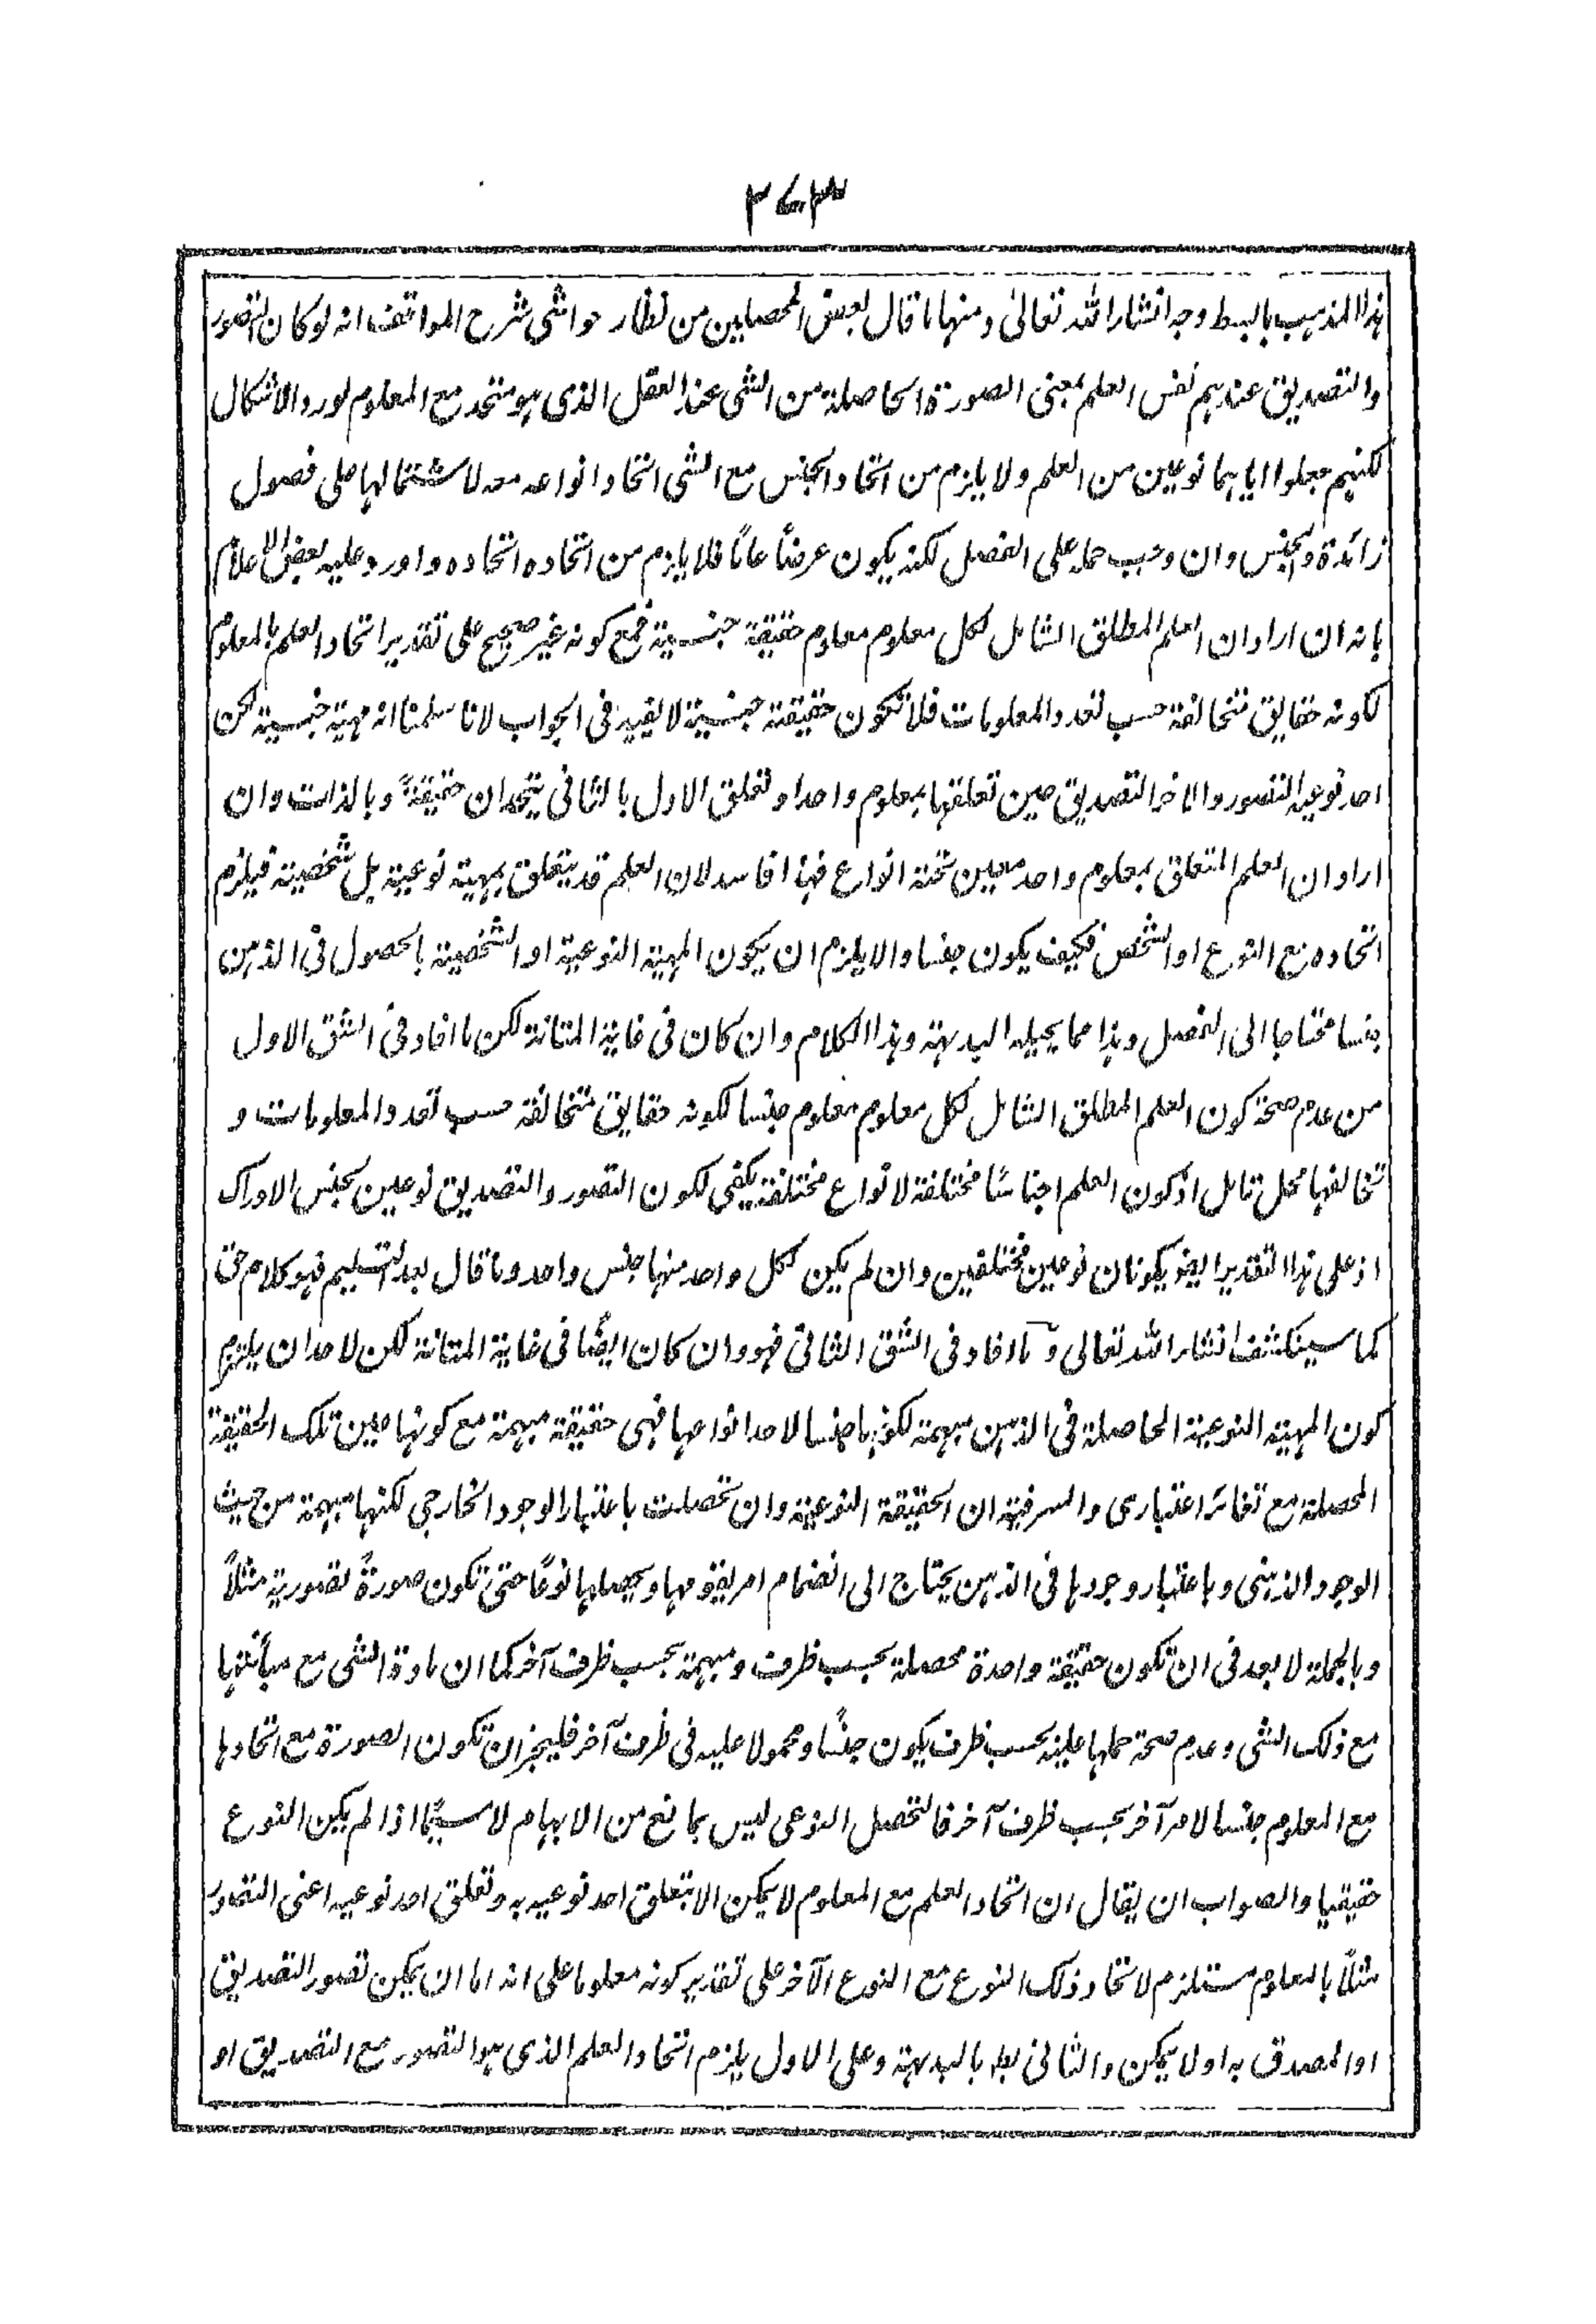 ٣٧٣
هذا المذهب بالبسط وجه انشاء الله تعالىٰ ومنها ما قال بعض المحصلين من نظار حواشى شرح المواقف انه لو كان التصور
والتصديق عندهم نفس العلم بمعنى الصورة الحاصلة من الشى عند العقل الذى هو متحد مع المعلوم لورد الاشكال
لكنهم جعلوا اياهما نوعين من العلم ولا يلزم من اتحاد الجنس مع الشى اتحاد انواعه معه لاشتمالها على فصول
زائدة والجنس وان وجب حمله على الفصل لكنه يكون عرضًا عامًا فلا يلزم من اتحاده اتحاده واورد عليه بعض الاعلام
بانه ان اراد ان العلم المطلق الشامل لكل معلوم معلوم حقيقة جنسية فمع كونه غير صحيح على تقدير اتحاد العلم بالمعلوم
لكونه حقايق متخالفة حسب تعدد المعلومات فلا تكون حقيقة جنسية لا يفيد فى الجواب لانا سلمنا انه مهية جنسية لكن
احد نوعيه التصور والاخر التصديق حين تعلقهما بمعلوم واحد او تعلق الاول بالثانى يتحدان حقيقةً وبالذات وان
اراد ان العلم المتعلق بمعلوم واحد معين تحته انواع فهذا فاسد لان العلم قد يتعلق بمهية نوعية بل شخصية فيلزم
اتحاده مع النوع او الشخص فكيف يكون جنسا والا يلزم ان يكون المهية النوعية او الشخصية بالحصول فى الذهن
جنسا محتاجا الى الفصل وهذا مما يحيله البديهة وهذا الكلام وان كان فى غاية المتانة لكن ما افاد فى الشق الاول
من عدم صحة كون العلم المطلق الشامل لكل معلوم معلوم جنسا لكونه حقايق متخالفة حسب تعدد المعلومات و
تخالفها محل تامل اذ كون العلم اجناسًا مختلفة لانواع مختلفة يكفى لكون التصور والتصديق نوعين لجنس الادراك
اذ على هذا التقدير ايضو يكونان نوعين مختلفين وان لم يكن لكل واحد منهما جنس واحد وما قال بعد التسليم فهو كلام حق
كما سينكشف انشاء الله تعالى وما افاد فى الشق الثانى فهو وان كان ايضًا فى غاية المتانة لكن لاحد ان يلتزم
كون المهية النوعية الحاصلة فى الذهن مبهمة لكونها جنسا لاحد انواعها فهى حقيقة مبهمة مع كونها عين تلك الحقيقة
المحصلة مع تغائر اعتبارى والسر فيه ان الحقيقة النوعية وان تحصلت باعتبار الوجود الخارجى لكنها مبهمة من حيث
الوجود الذهنى وباعتبار وجودها فى الذهن يحتاج الى انضمام امر يقومها ويحصلها نوعًا حتى تكون صورةً تصورية مثلاً
وبالجملة لا بعد فى ان تكون حقيقة واحدة محصلة بحسب ظرف ومبهمة بحسب ظرف آخر كما ان مادة الشى مع مبائنتها
مع ذلك الشى وعدم صحة حملها عليه بحسب ظرف يكون جنسًا ومحمولا عليه فى ظرف آخر فليجز ان تكون الصورة مع اتحادها
مع المعلوم جنسا لامر آخر بحسب ظرف آخر فالتحصل النوعى ليس بمانع من الابهام لا سيمّا اذا لم يكن النوع
حقيقيا والصواب ان يقال ان اتحاد العلم مع المعلوم لا يمكن الا بتعلق احد نوعيه به وتعلق احد نوعيه اعنى التصور
مثلاً بالمعلوم مستلزم لاتحاد ذلك النوع مع النوع الآخر على تقدير كونه معلوما على انه اما ان يمكن تصور التصديق
او المصدق به او لا يمكن والثانى بط بالبديهة وعلى الاول يلزم اتحاد العلم الذى هو التصور مع التصديق او